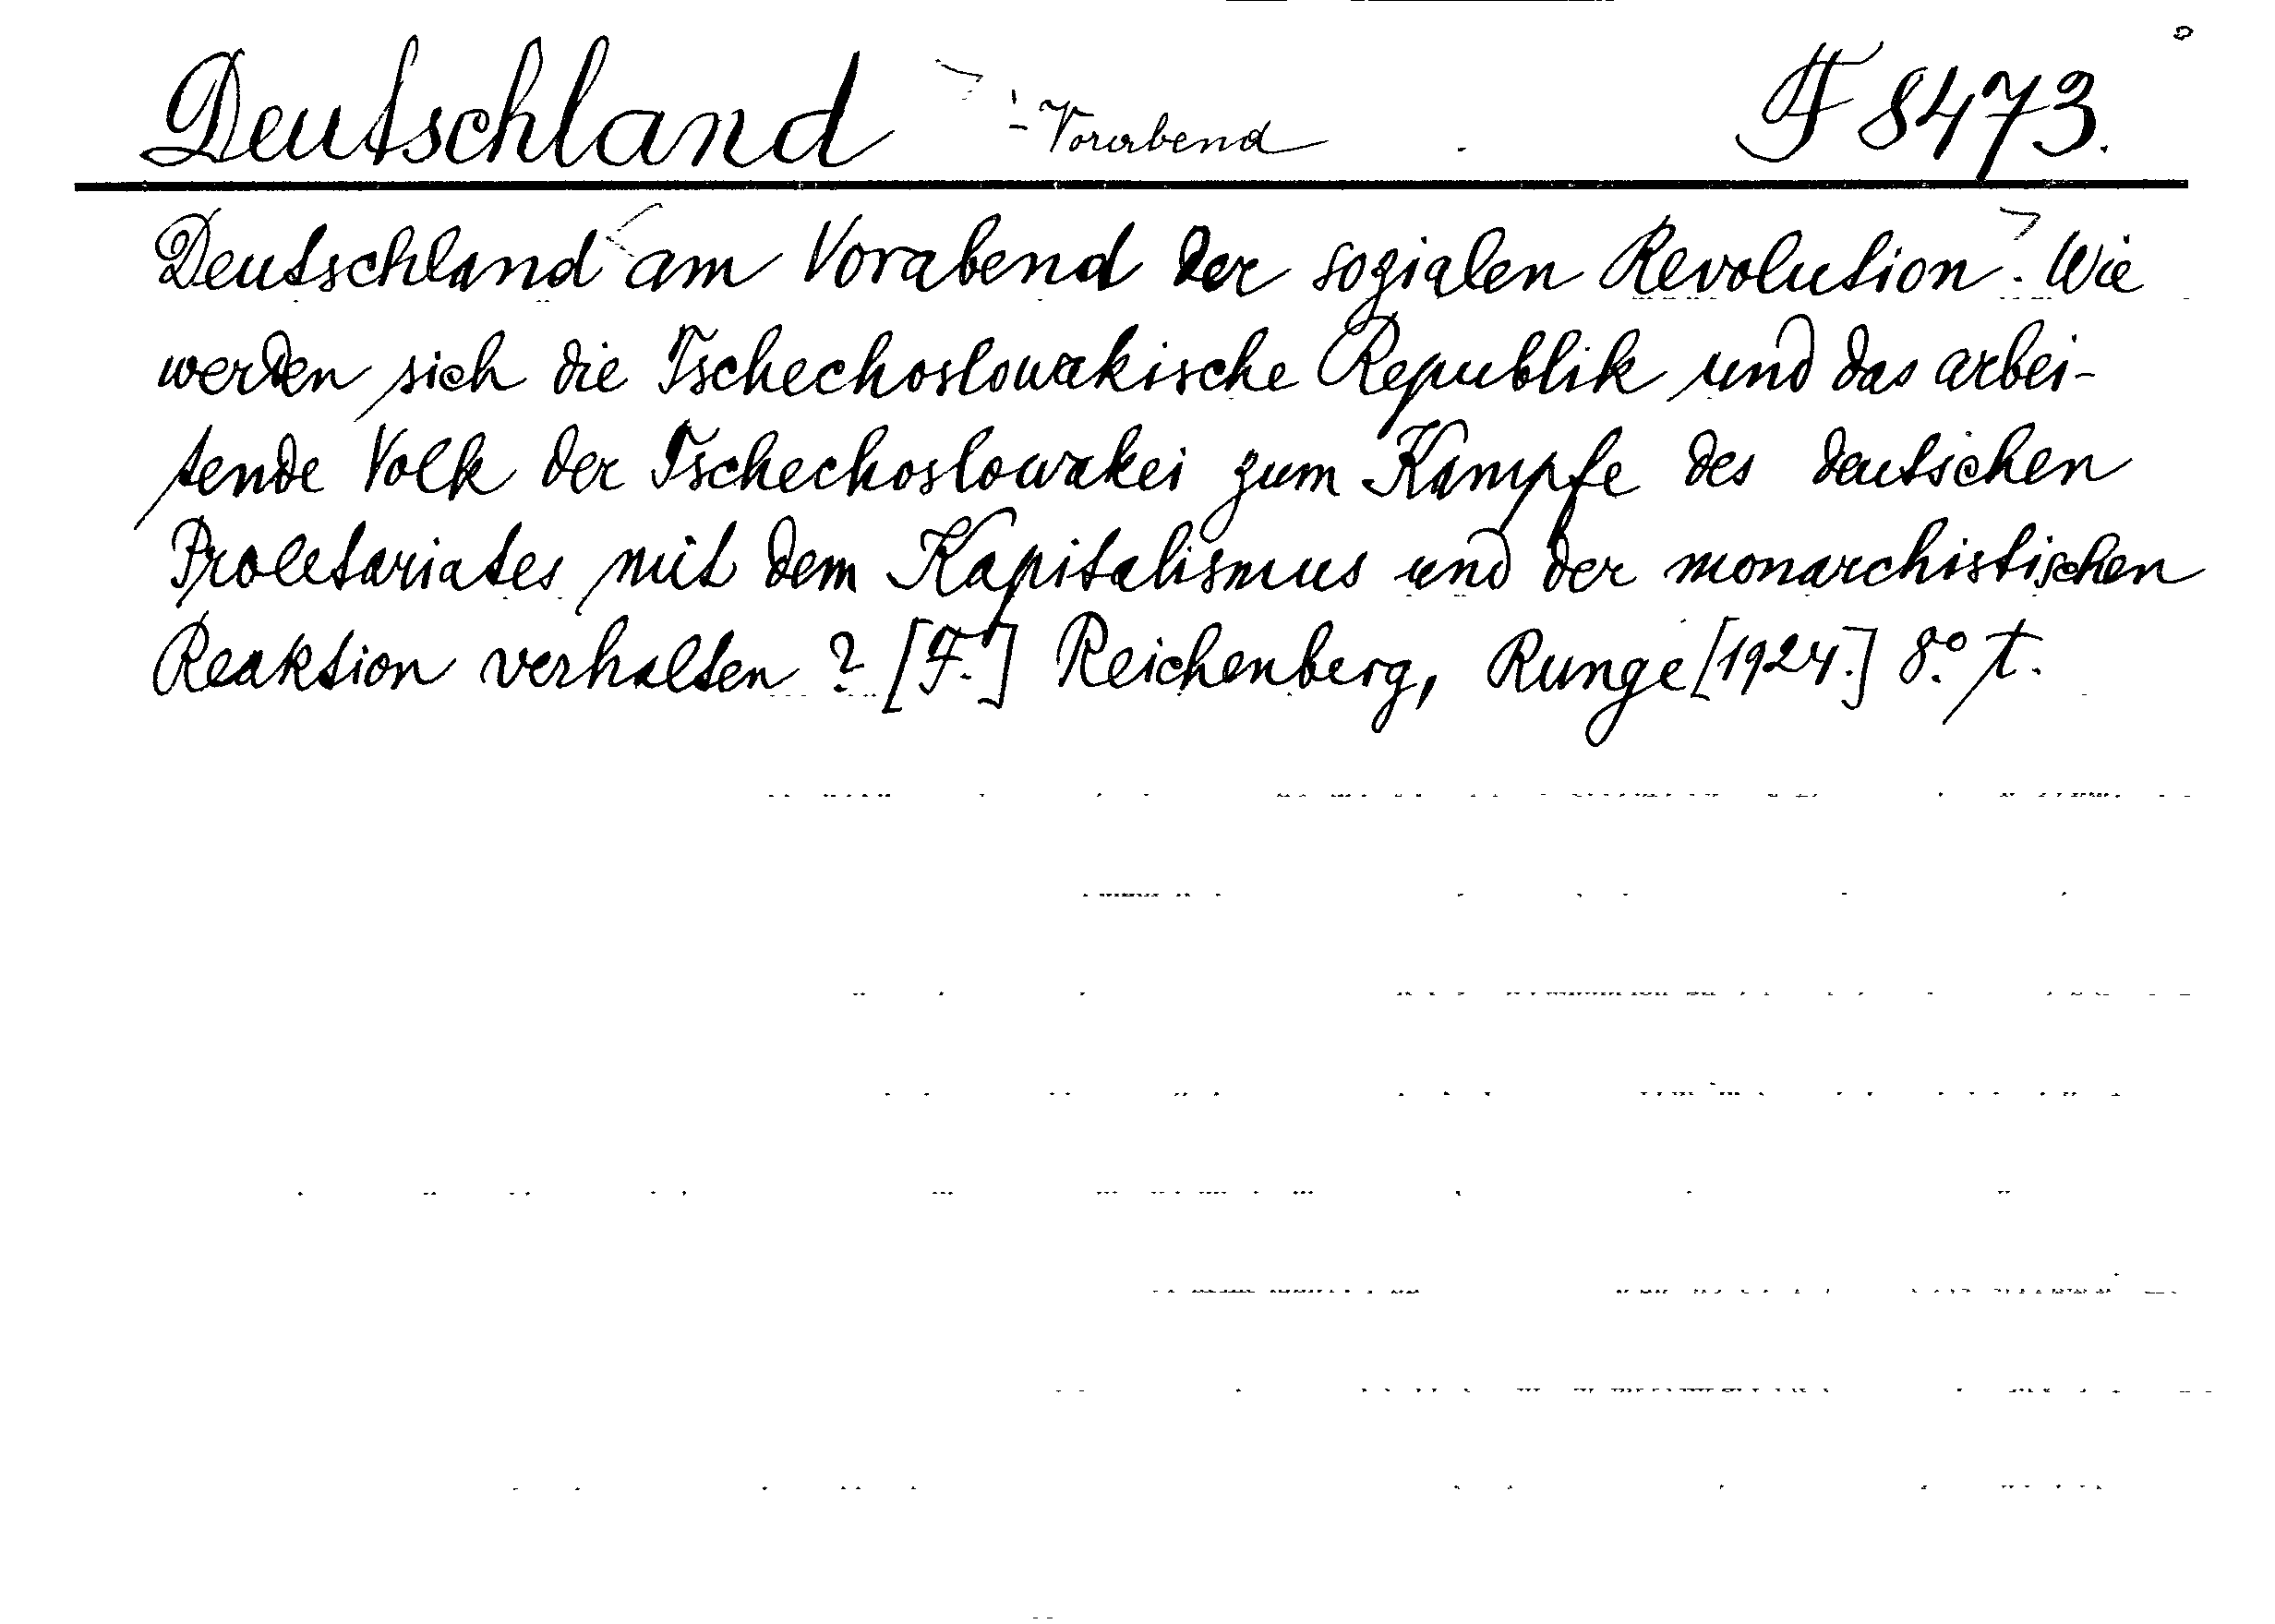 Deutschland - Vorabend F 8473.
Deutschland am Vorabend der sozialen Revolution? Wie
werden sich die Tschechoslowakische Republik und das arbei-
tende Volk der Tschechoslowakei zum Kampfe des deutschen
Proletariates mit dem Kapitalismus und der monarchistischen
Reaktion verhalten? [F.] Reichenberg, Runge [1924.] 8.° t.